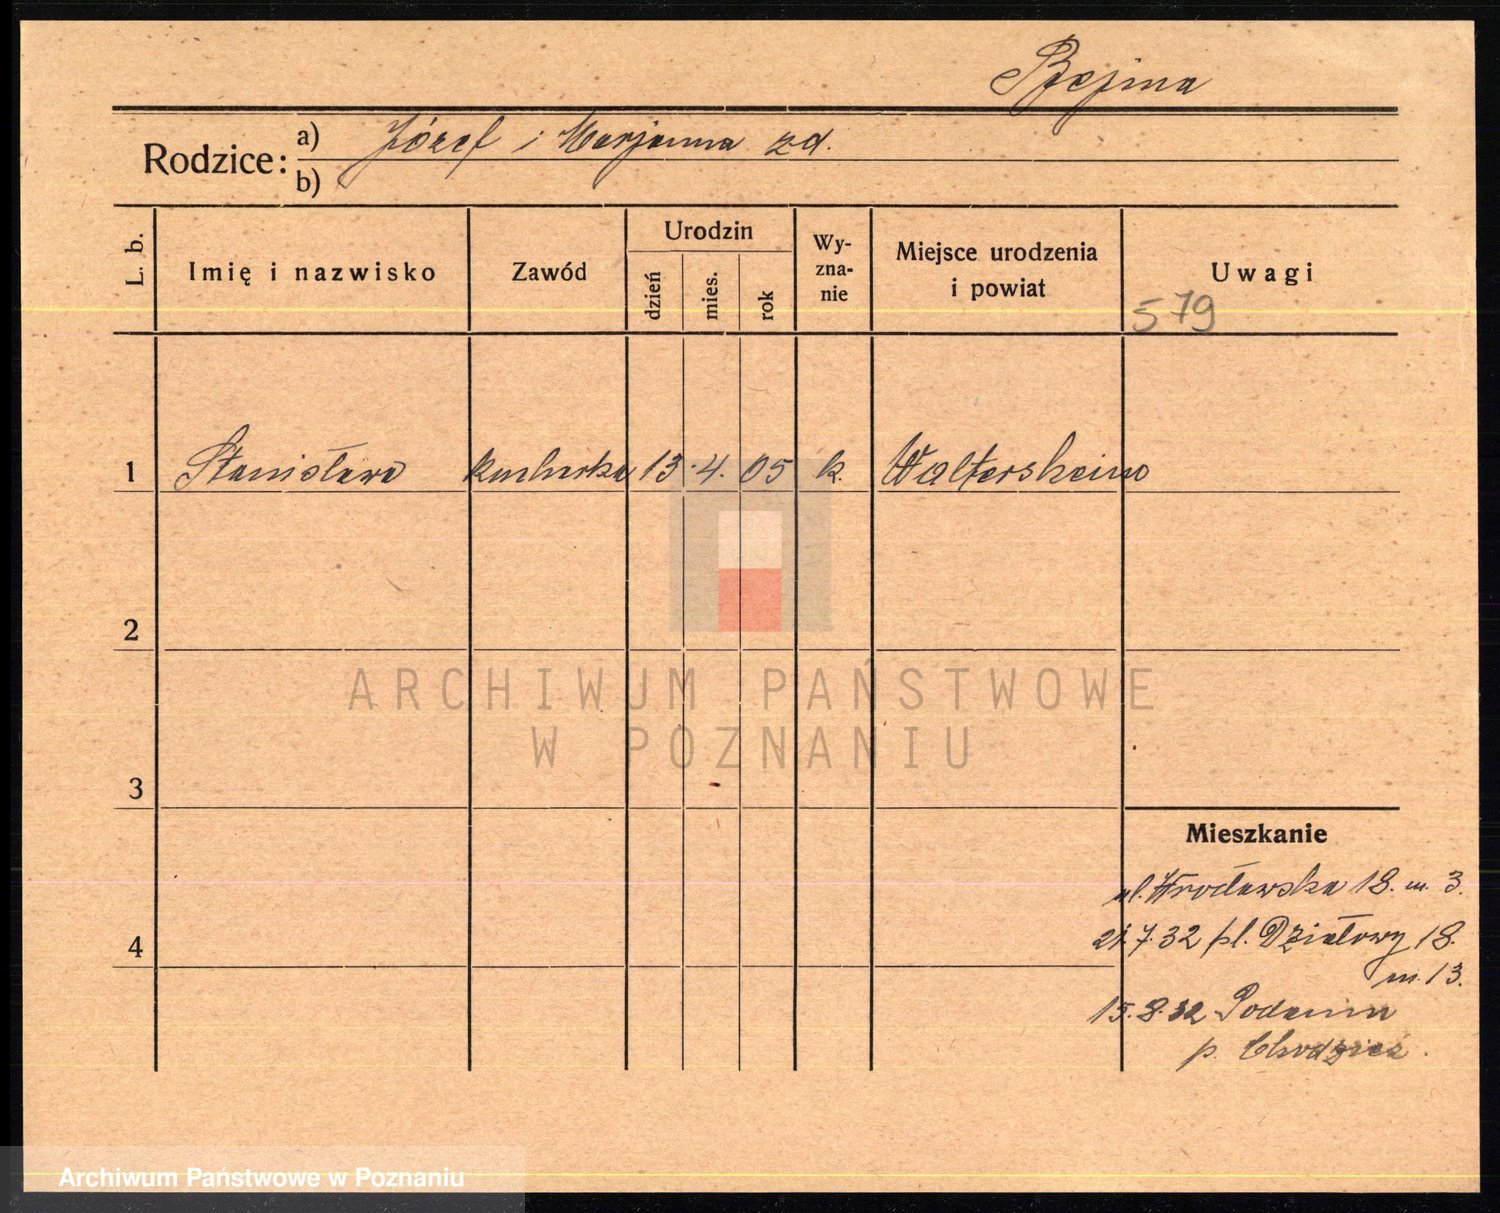 Rodzice:
a) Józef i Marjanna zd.
b)
L. b.
Imię i nazwisko
Zawód
Urodzin
dzień
mies.
rok
Wy-
zna-
nie
Miejsce urodzenia
i powiat
Uwagi
579
1 Stanisława kucharka 13. 4. 05 k. Waltersheim
2
3
4
Mieszkanie
ul. Wrocławska 18. m. 3.
21.7.32 pl. Działowy 18.
m. 13.
15.8.32 Podanin
p. Chodzież.
ARCHIWUM PAŃSTWOWE
W POZNANIU
Archiwum Państwowe w Poznaniu